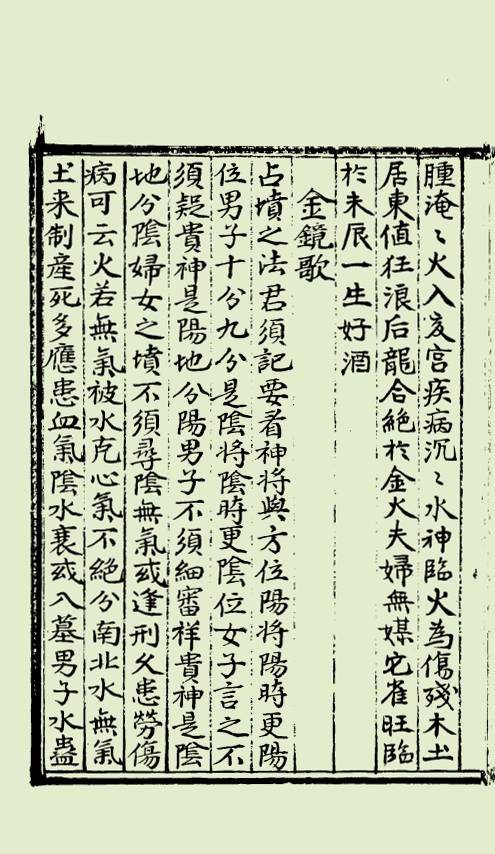 腫淹〻火入亥宫疾病沉〻水神臨火為傷殘木土
居東值狂浪后龍合絶於金火夫婦無媒它雀旺臨
於未辰一生好酒
金鏡歌
占墳之法君須記要看神将與方位陽将陽時更陽
位男子十分九分是隂将隂時更隂位女子言之不
須疑貴神是陽地分陽男子不須細審祥貴神是隂
地分隂婦女之墳不須尋隂無氣或逢刑久患勞傷
病可云火若無氣被水克心氣不絶分南北水無氣
土来制産死多應患血氣隂水衰或入墓男子水蠱